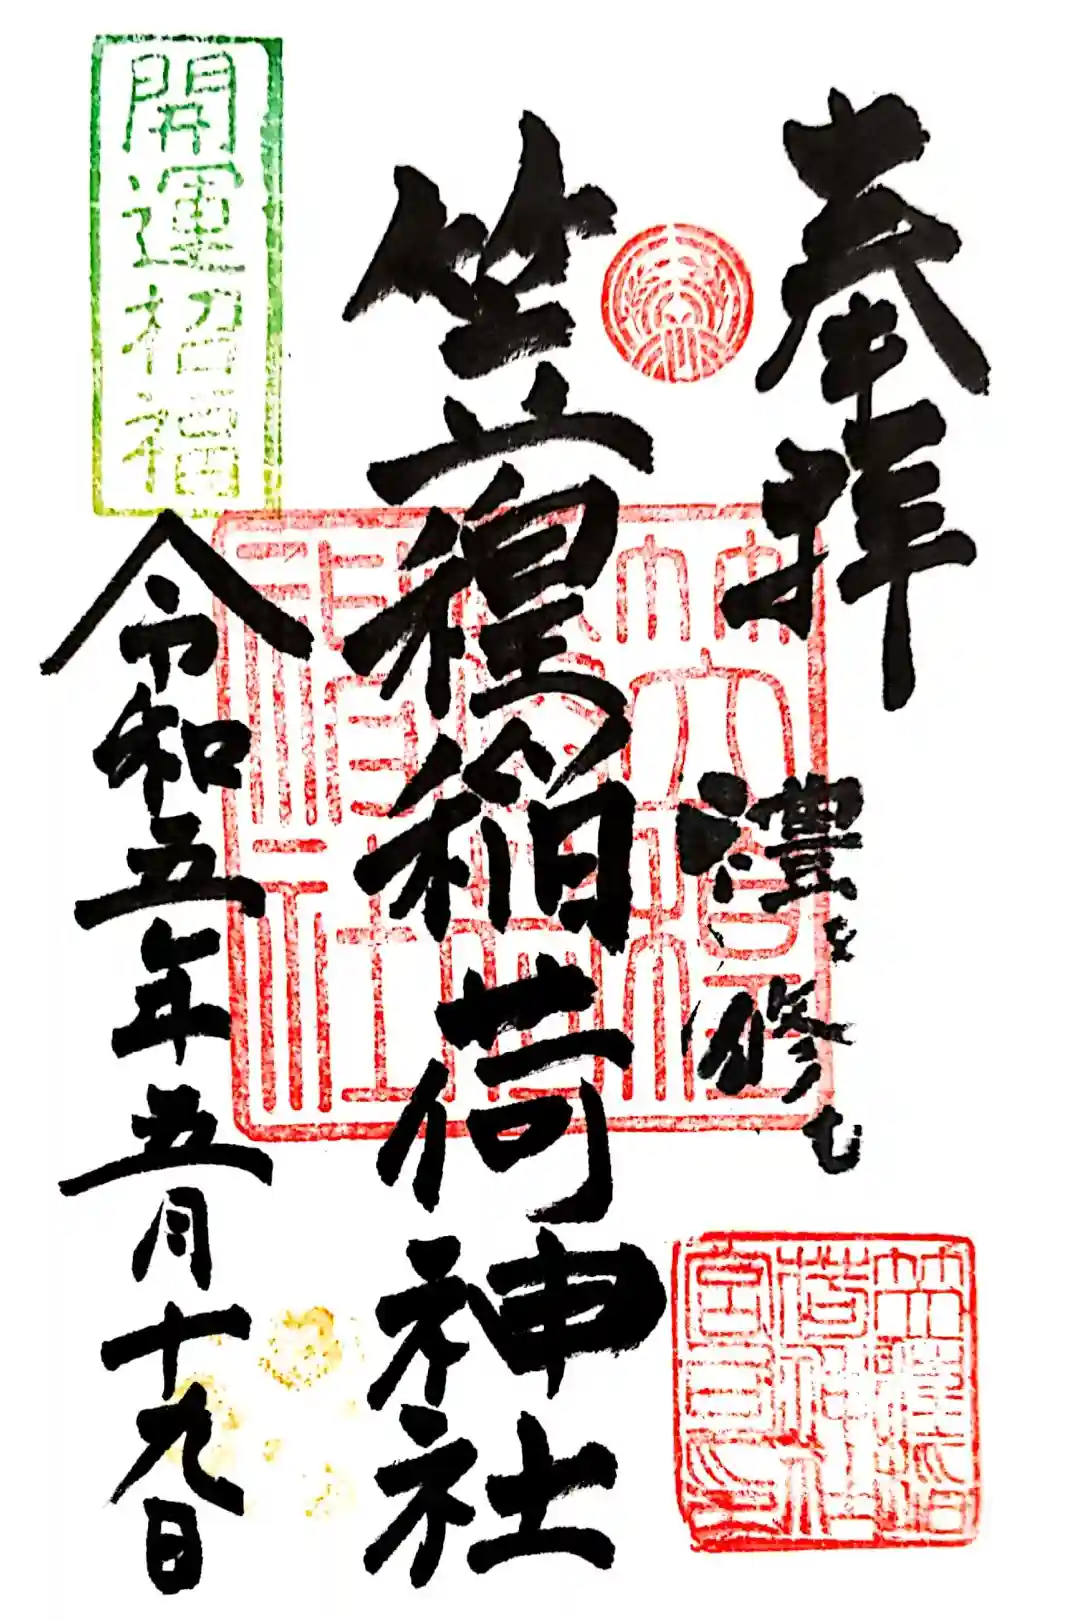 奉拝
笠䅣稲荷神社
令和五年五月十九日
開運招福
笠䅣
稲荷
神社
笠䅣稲
荷神社
宮司之印